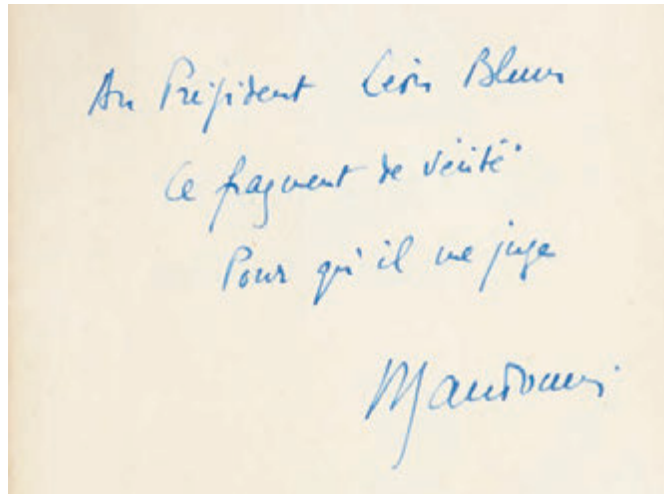 Au Président Léon Blum
Ce fragment de vérité
Pour qu'il me juge